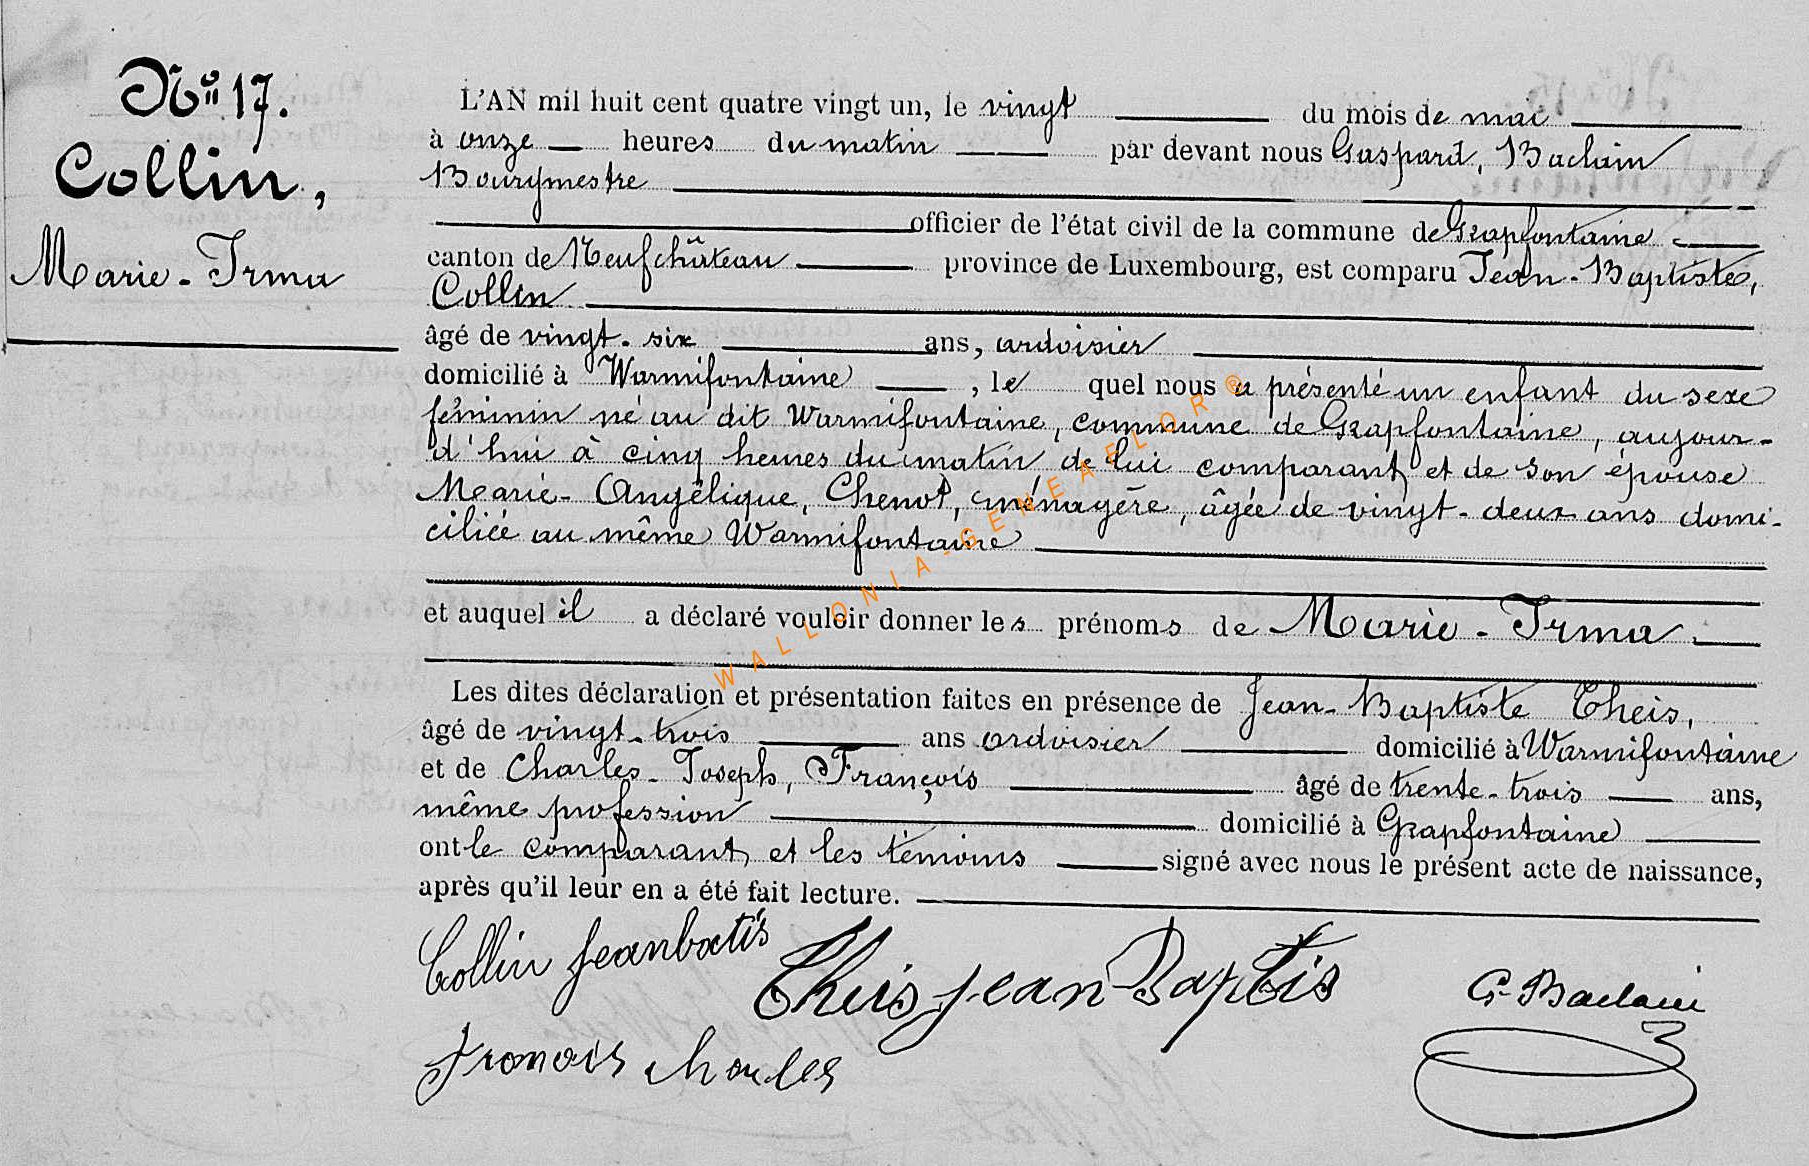 Nº 17.
Collin,
Marie-Irma
L'AN mil huit cent quatre vingt un, le vingt du mois de mai
à onze heures du matin par devant nous Gaspard, Baclain
Bourgmestre
officier de l'état civil de la commune de Grapfontaine
canton de Neufchâteau province de Luxembourg, est comparu Jean-Baptiste,
Collin
âgé de vingt-six ans, ardoisier
domicilié à Warmifontaine, le quel nous a présenté un enfant du sexe
féminin né au dit Warmifontaine, commune de Grapfontaine, aujour-
d'hui à cinq heures du matin de lui comparant et de son épouse
Marie-Angélique, Chenot, ménagère, âgée de vingt-deux ans domi-
ciliée au même Warmifontaine
et auquel il a déclaré vouloir donner les prénoms de Marie-Irma
Les dites déclaration et présentation faites en présence de Jean-Baptiste Theis,
âgé de vingt-trois ans ardoisier domicilié à Warmifontaine
et de Charles-Joseph, François âgé de trente-trois ans,
même profession domicilié à Grapfontaine
ont le comparant et les témoins signé avec nous le présent acte de naissance,
après qu'il leur en a été fait lecture.
Collin Jeanbatis Theis Jean Baptis G. Baclain
Francois Charles
WALLONIA-GENEALOR®